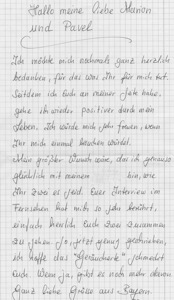 Hallo meine liebe Marion
und Pavel
Ich möchte mich nochmals ganz herzlich
bedanken, für das was Ihr für mich tut.
Seitdem ich Euch an meiner Seite habe,
gehe ich wieder positiver durch mein
Leben. Ich würde mich sehr freuen, wenn
Ihr mich einmal besuchen würdet.
Mein größter Wunsch wäre, das ich genauso
glücklich mit meinem bin, wie
Ihr zwei es seid. Euer Interview im
Fernsehen hat mich so sehr berührt,
einfach herrlich Euch zwei zusammen
zu sehen. So, jetzt genug geschrieben,
ich hoffe das "Geräucherte" schmeckt
Euch. Wenn ja, gibt es noch mehr davon
Ganz liebe Grüsse aus Bayern